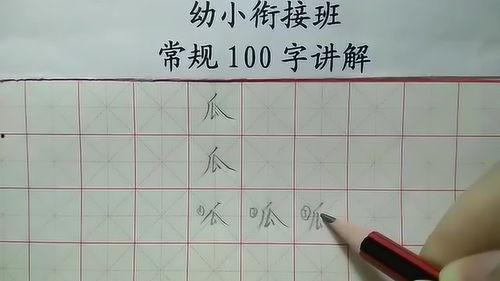 幼小衔接班
常规100字讲解
瓜
瓜
①瓜 ②瓜 ③瓜